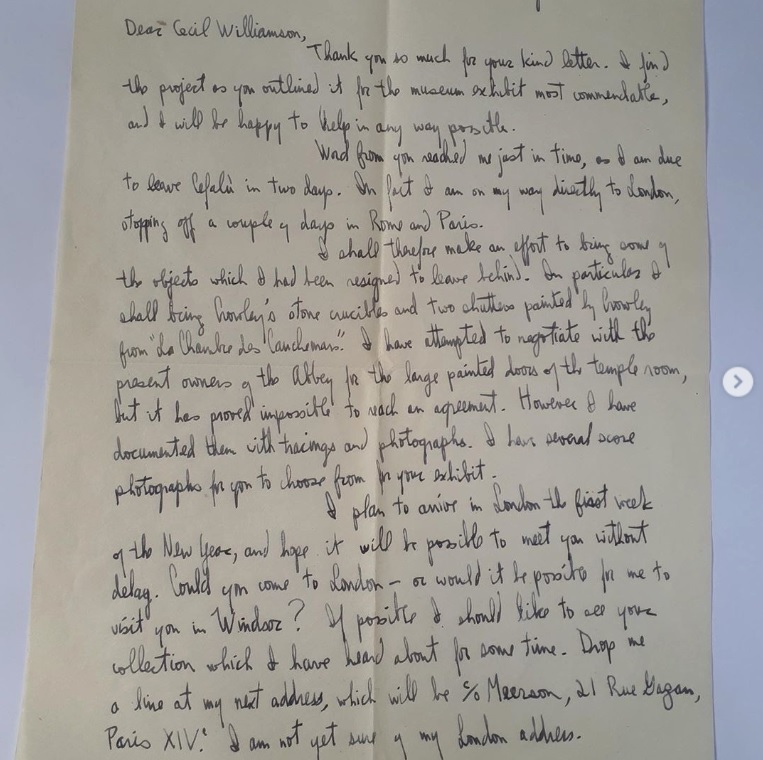 Dear Cecil Williamson,
Thank you so much for your kind letter. I find
the project as you outlined it for the museum exhibit most commendable,
and I will be happy to help in any way possible.
Word from you reached me just in time, as I am due
to leave Cefalù in two days. In fact I am on my way directly to London,
stopping off a couple of days in Rome and Paris.
I shall therefore make an effort to bring some of
the objects which I had been resigned to leave behind. In particular I
shall bring Crowley's stone crucibles and two shutters painted by Crowley
from "La Chambre des Cauchemars". I have attempted to negotiate with the
present owners of the Abbey for the large painted doors of the temple room,
but it has proved impossible to reach an agreement. However I have
documented them with tracings and photographs. I have several score
photographs for you to choose from for your exhibit.
I plan to arrive in London the first week
of the New Year, and hope it will be possible to meet you without
delay. Could you come to London – or would it be possible for me to
visit you in Windsor? If possible I should like to see your
collection which I have heard about for some time. Drop me
a line at my next address, which will be c/o Meerson, 21 Rue Gazan,
Paris XIVe. I am not yet sure of my London address.